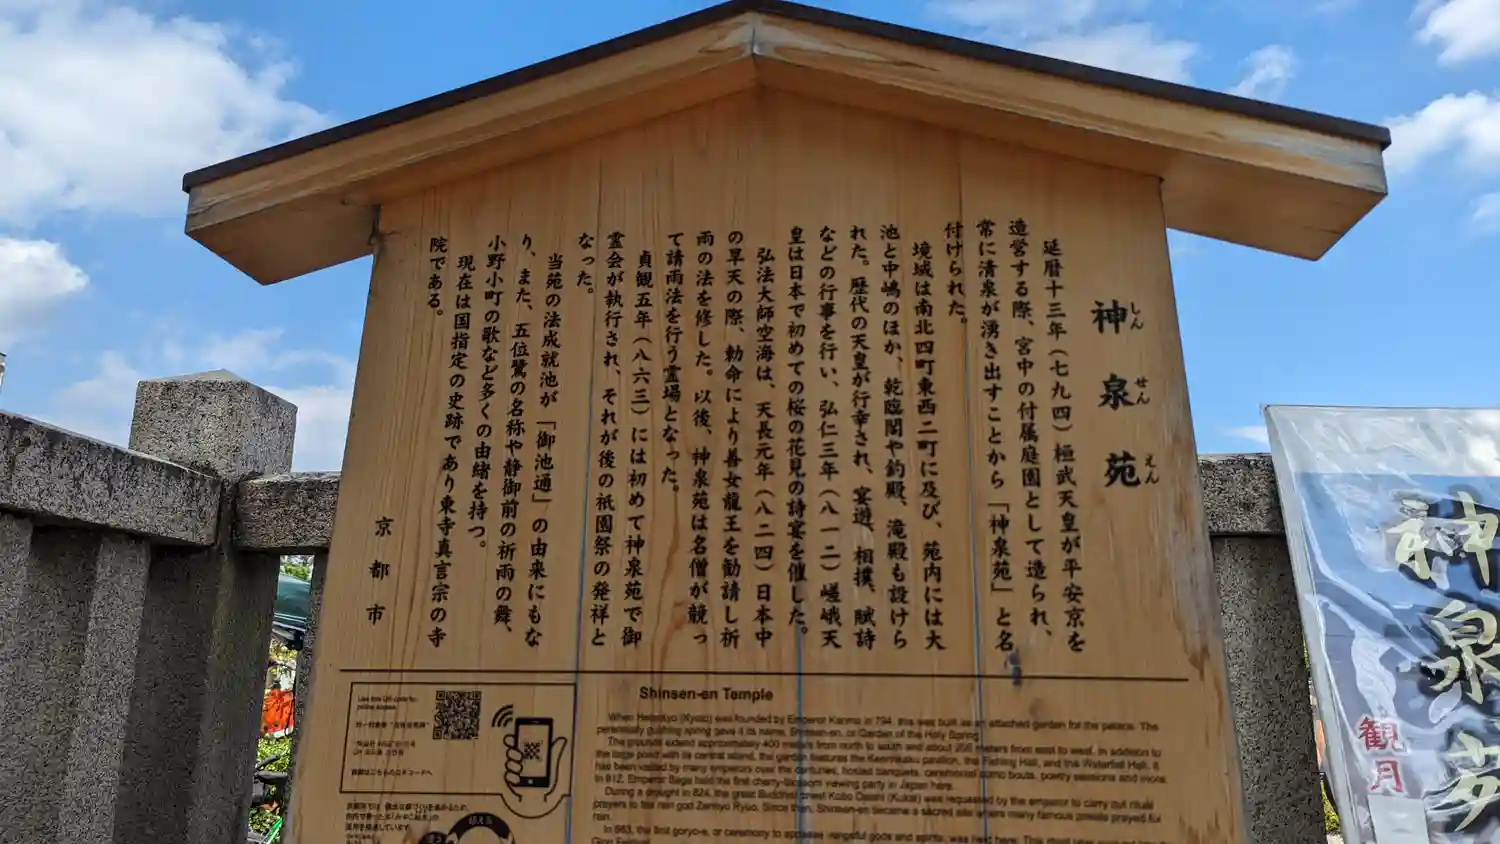 神泉苑
しん せん えん
延暦十三年（七九四）桓武天皇が平安京を
造営する際、宮中の付属庭園として造られ、
常に清泉が湧き出すことから「神泉苑」と名
付けられた。
境域は南北四町東西二町に及び、苑内には大
池と中嶋のほか、乾臨閣や釣殿、滝殿も設けら
れた。歴代の天皇が行幸され、宴遊、相撲、賦詩
などの行事を行い、弘仁三年（八一二）嵯峨天
皇は日本で初めての桜の花見の詩宴を催した。
弘法大師空海は、天長元年（八二四）日本中
の旱天の際、勅命により善女龍王を勧請し祈
雨の法を修した。以後、神泉苑は名僧が競っ
て請雨法を行う霊場となった。
貞観五年（八六三）には初めて神泉苑で御
霊会が執行され、それが後の祇園祭の発祥と
なった。
当苑の法成就池が「御池通」の由来にもな
り、また、五位鷺の名称や静御前の祈雨の舞、
小野小町の歌など多くの由緒を持つ。
現在は国指定の史跡であり東寺真言宗の寺
院である。
京都市
Shinsen-en Temple
When Heiankyo (Kyoto) was founded by Emperor Kanmu in 794, this was built as an attached garden for the palace. The
perennially gushing spring gave it its name, Shinsen-en, or Garden of the Holy Spring.
The grounds extend approximately 400 meters from north to south and about 200 meters from west to east. In addition to
the large pond with its central island, the garden features the Kenrinkaku pavilion, the Fishing Hall, and the Waterfall Hall. It
has been visited by many emperors over the centuries, hosted banquets, ceremonial sumo bouts, poetry sessions and more.
In 812, Emperor Saga held the first cherry-blossom viewing party in Japan here.
During a drought in 824, the great Buddhist priest Kobo Daishi (Kukai) was requested by the emperor to carry out ritual
prayers to the rain god Zennyo Ryuo. Since then, Shinsen-en became a sacred site where many famous priests prayed for
rain.
In 863, the first goryo-e, or ceremony to appease vengeful gods and spirits, was held here.
神泉苑
観月